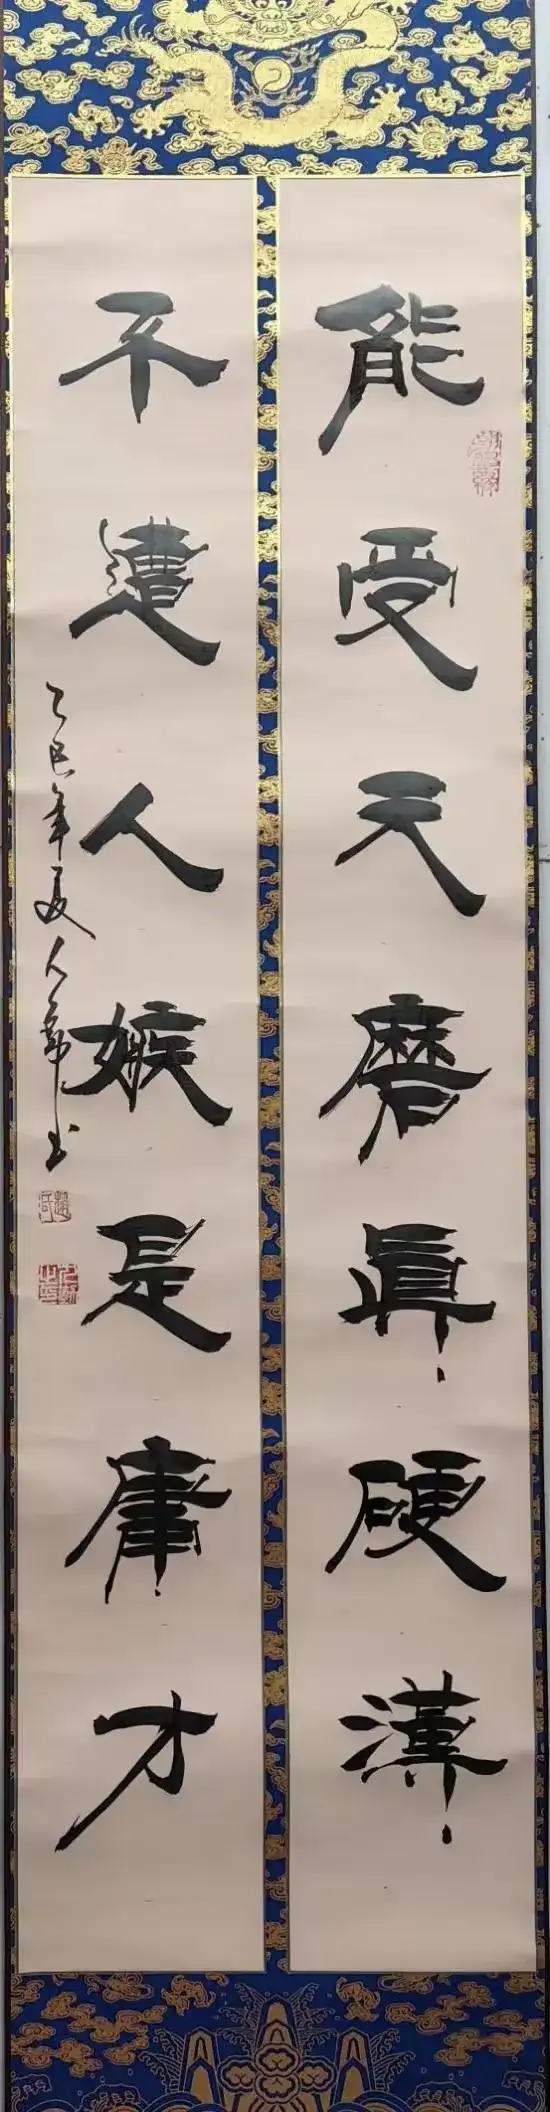 能受天磨真硬漢
不遭人嫉是庸才
乙巳年夏人
書